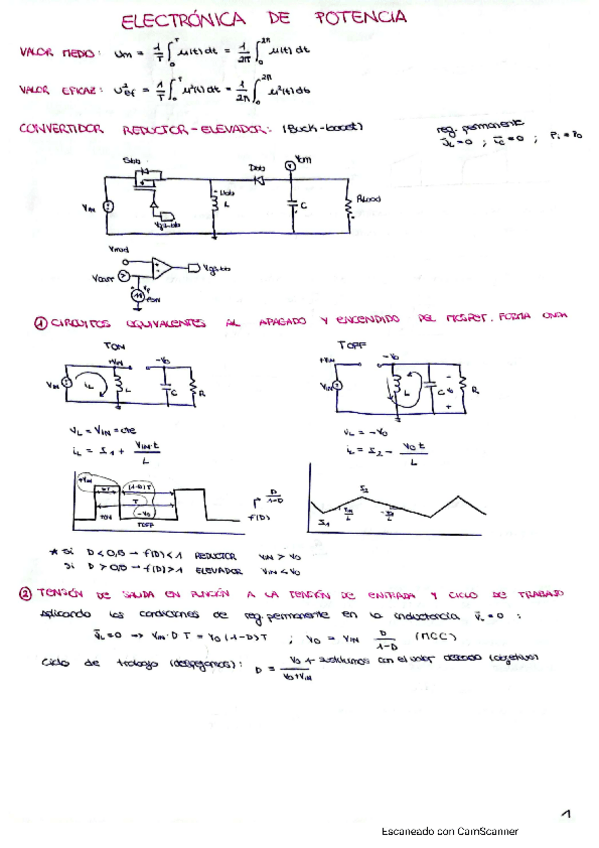 ELECTRÓNICA DE POTENCIA
VALOR MEDIO: Um = 1/T ∫₀ᵀ u(t) dt = 1/2π ∫₀²π u(t) dt
VALOR EFICAZ: U²ef = 1/T ∫₀ᵀ u²(t) dt = 1/2π ∫₀²π u²(t) dt
CONVERTIDOR REDUCTOR-ELEVADOR: (Buck-boost)
reg. permanente
v̄L = 0 ; īc = 0 ; Pi = Po
L
C
RLoad
Vmod
① CIRCUITOS EQUIVALENTES AL APAGADO Y ENCENDIDO DEL MOSFET. FORMA ONDA
TON
TOFF
+VIN
-Vo
+VIN
-Vo
VIN
iL
L
C
R
VIN
L
C
Vo
R
vL = VIN = cte
iL = I1 + VIN·t / L
vL = -Vo
iL = I2 - Vo t / L
+VIN
(1-D)T
T
-Vo
TON
TOFF
f(D)
D / 1-D
I1
I2
* Si D < 0,5 → f(D) < 1 REDUCTOR VIN > Vo
Si D > 0,5 → f(D) > 1 ELEVADOR VIN < Vo
② TENSIÓN DE SALIDA EN FUNCIÓN A LA TENSIÓN DE ENTRADA Y CICLO DE TRABAJO
Aplicando las condiciones de reg. permanente en la inductancia v̄L = 0 :
v̄L = 0 ⇒ VIN · D T = Vo (1-D) T ; Vo = VIN D / 1-D (MCC)
Ciclo de trabajo (despejamos): D = Vo / Vo+VIN → sustituimos con el valor deseado (objetivo)
1
Escaneado con CamScanner